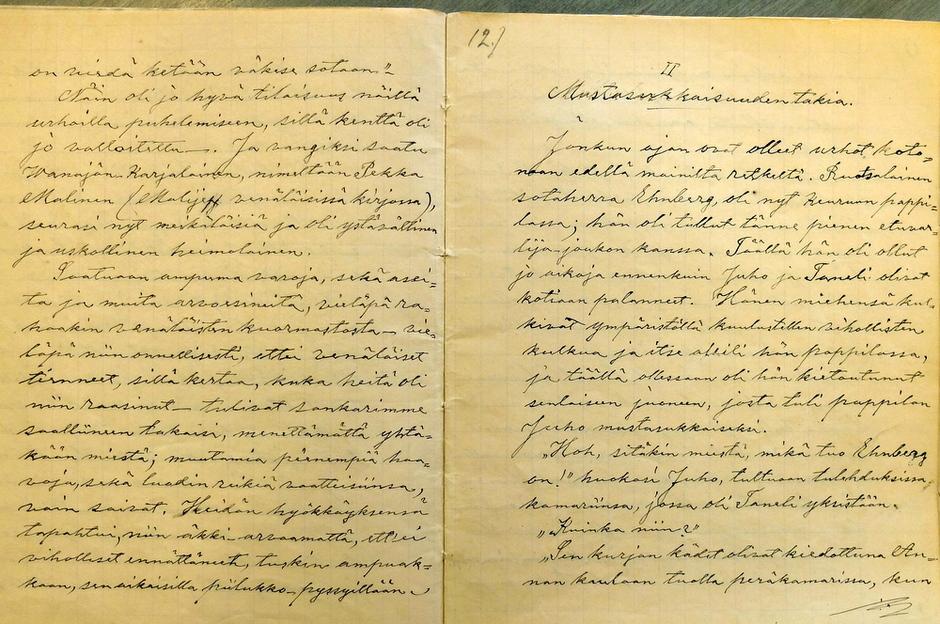 on viedä ketään väkise sotaan."
Näin oli jo hyvä tilaisuus näillä
urhoilla puhelemiseen, sillä kenttä oli
jo valloitettu. Ja vangiksi saatu
Wanajän Karjalainen, nimeltään Pekka
Malinen (Malijeff venäläisissä kirjoissa),
seurasi nyt meikäläisiä ja oli ystävällinen
ja uskollinen heimolainen.
Saatuaan ampuma varoja, sekä asei-
ta ja muita arvoesineitä, vieläpä ra-
haakin venäläisten kuormastosta – vie-
läpä niin onnellisesti, ettei venäläiset
tienneet, sillä kertaa, kuka heitä oli
niin raasinut – tulivat sankarimme
saalliineen takaisi, menettämättä yhtä-
kään miestä; muutamia pienempiä haa-
voja, sekä luodin reikiä vaatteisiinsa,
vain saivat. Heidän hyökkäyksensä
tapahtui, niin äkki arvaamatta, ettei
viholliset ennättäneet, tuskin ampuak-
kaan, sen aikaisilla piilukko-pyssyillään.
12.)
II
Mustasukkaisuuden takia.
Jonkun ajan ovat olleet urhot koto-
naan edellä mainitta retkeltä. Ruotsalainen
sotaherra Ehnberg, oli nyt Keuruun pappi-
lassa; hän oli tullut tänne pienen etuvar-
tija-joukon kanssa. Täällä hän oli ollut
jo aikoja ennenkuin Juho ja Taneli olivat
kotiaan palanneet. Hänen miehensä kul-
kivat ympäristöllä kuulustellen vihollisten
kulkua ja itse oleili hän pappilassa,
ja täällä ollessaan oli hän kietoutunut
senlaiseen juoneen, josta tuli pappilan
Juho mustasukkaiseksi.
"Hoh, sitäkin miestä, mikä tuo Ehnberg
on!" huokasi Juho, tultuaan tulehduksissa
kamariinsa, jossa oli Taneli yksistään.
"Kuinka niin?"
"Sen kurjan kädet olivat kiedottuna An-
nan kaulaan tuolla peräkamarissa, kun